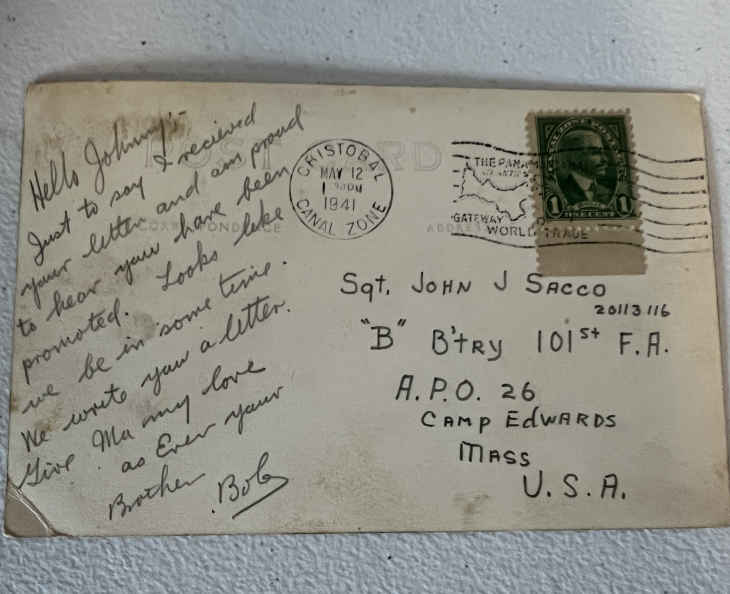 Hello Johnny:-
Just to say I recieved
your letter and am proud
to hear you have been
promoted. Looks like
we be in some time.
We write you a letter.
Give Ma my love
as Ever your
Brother Bob
POST CARD
CORRESPONDENCE
ADDRESS
CRISTOBAL
MAY 12
1941
CANAL ZONE
THE PANAMA
GATEWAY
WORLD TRADE
1 ONE CENT 1
Sgt. JOHN J SACCO
20113116
"B" B'TRY 101st F.A.
A.P.O. 26
CAMP EDWARDS
MASS
U.S.A.